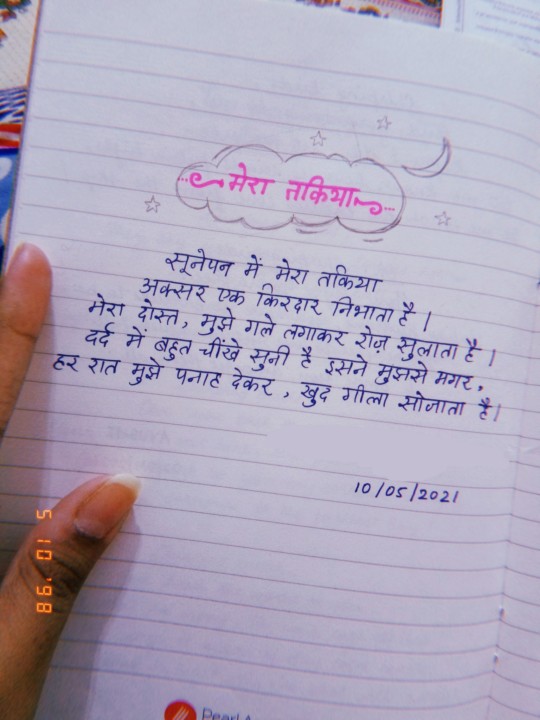 मेरा तकिया
सूनेपन में मेरा तकिया
अक्सर एक किरदार निभाता है।
मेरा दोस्त, मुझे गले लगाकर रोज़ सुलाता है।
दर्द में बहुत चींखे सुनी है इसने मुझसे मगर,
हर रात मुझे पनाह देकर, खुद गीला सोजाता है।
10/05/2021
5 10 '98
Pearl